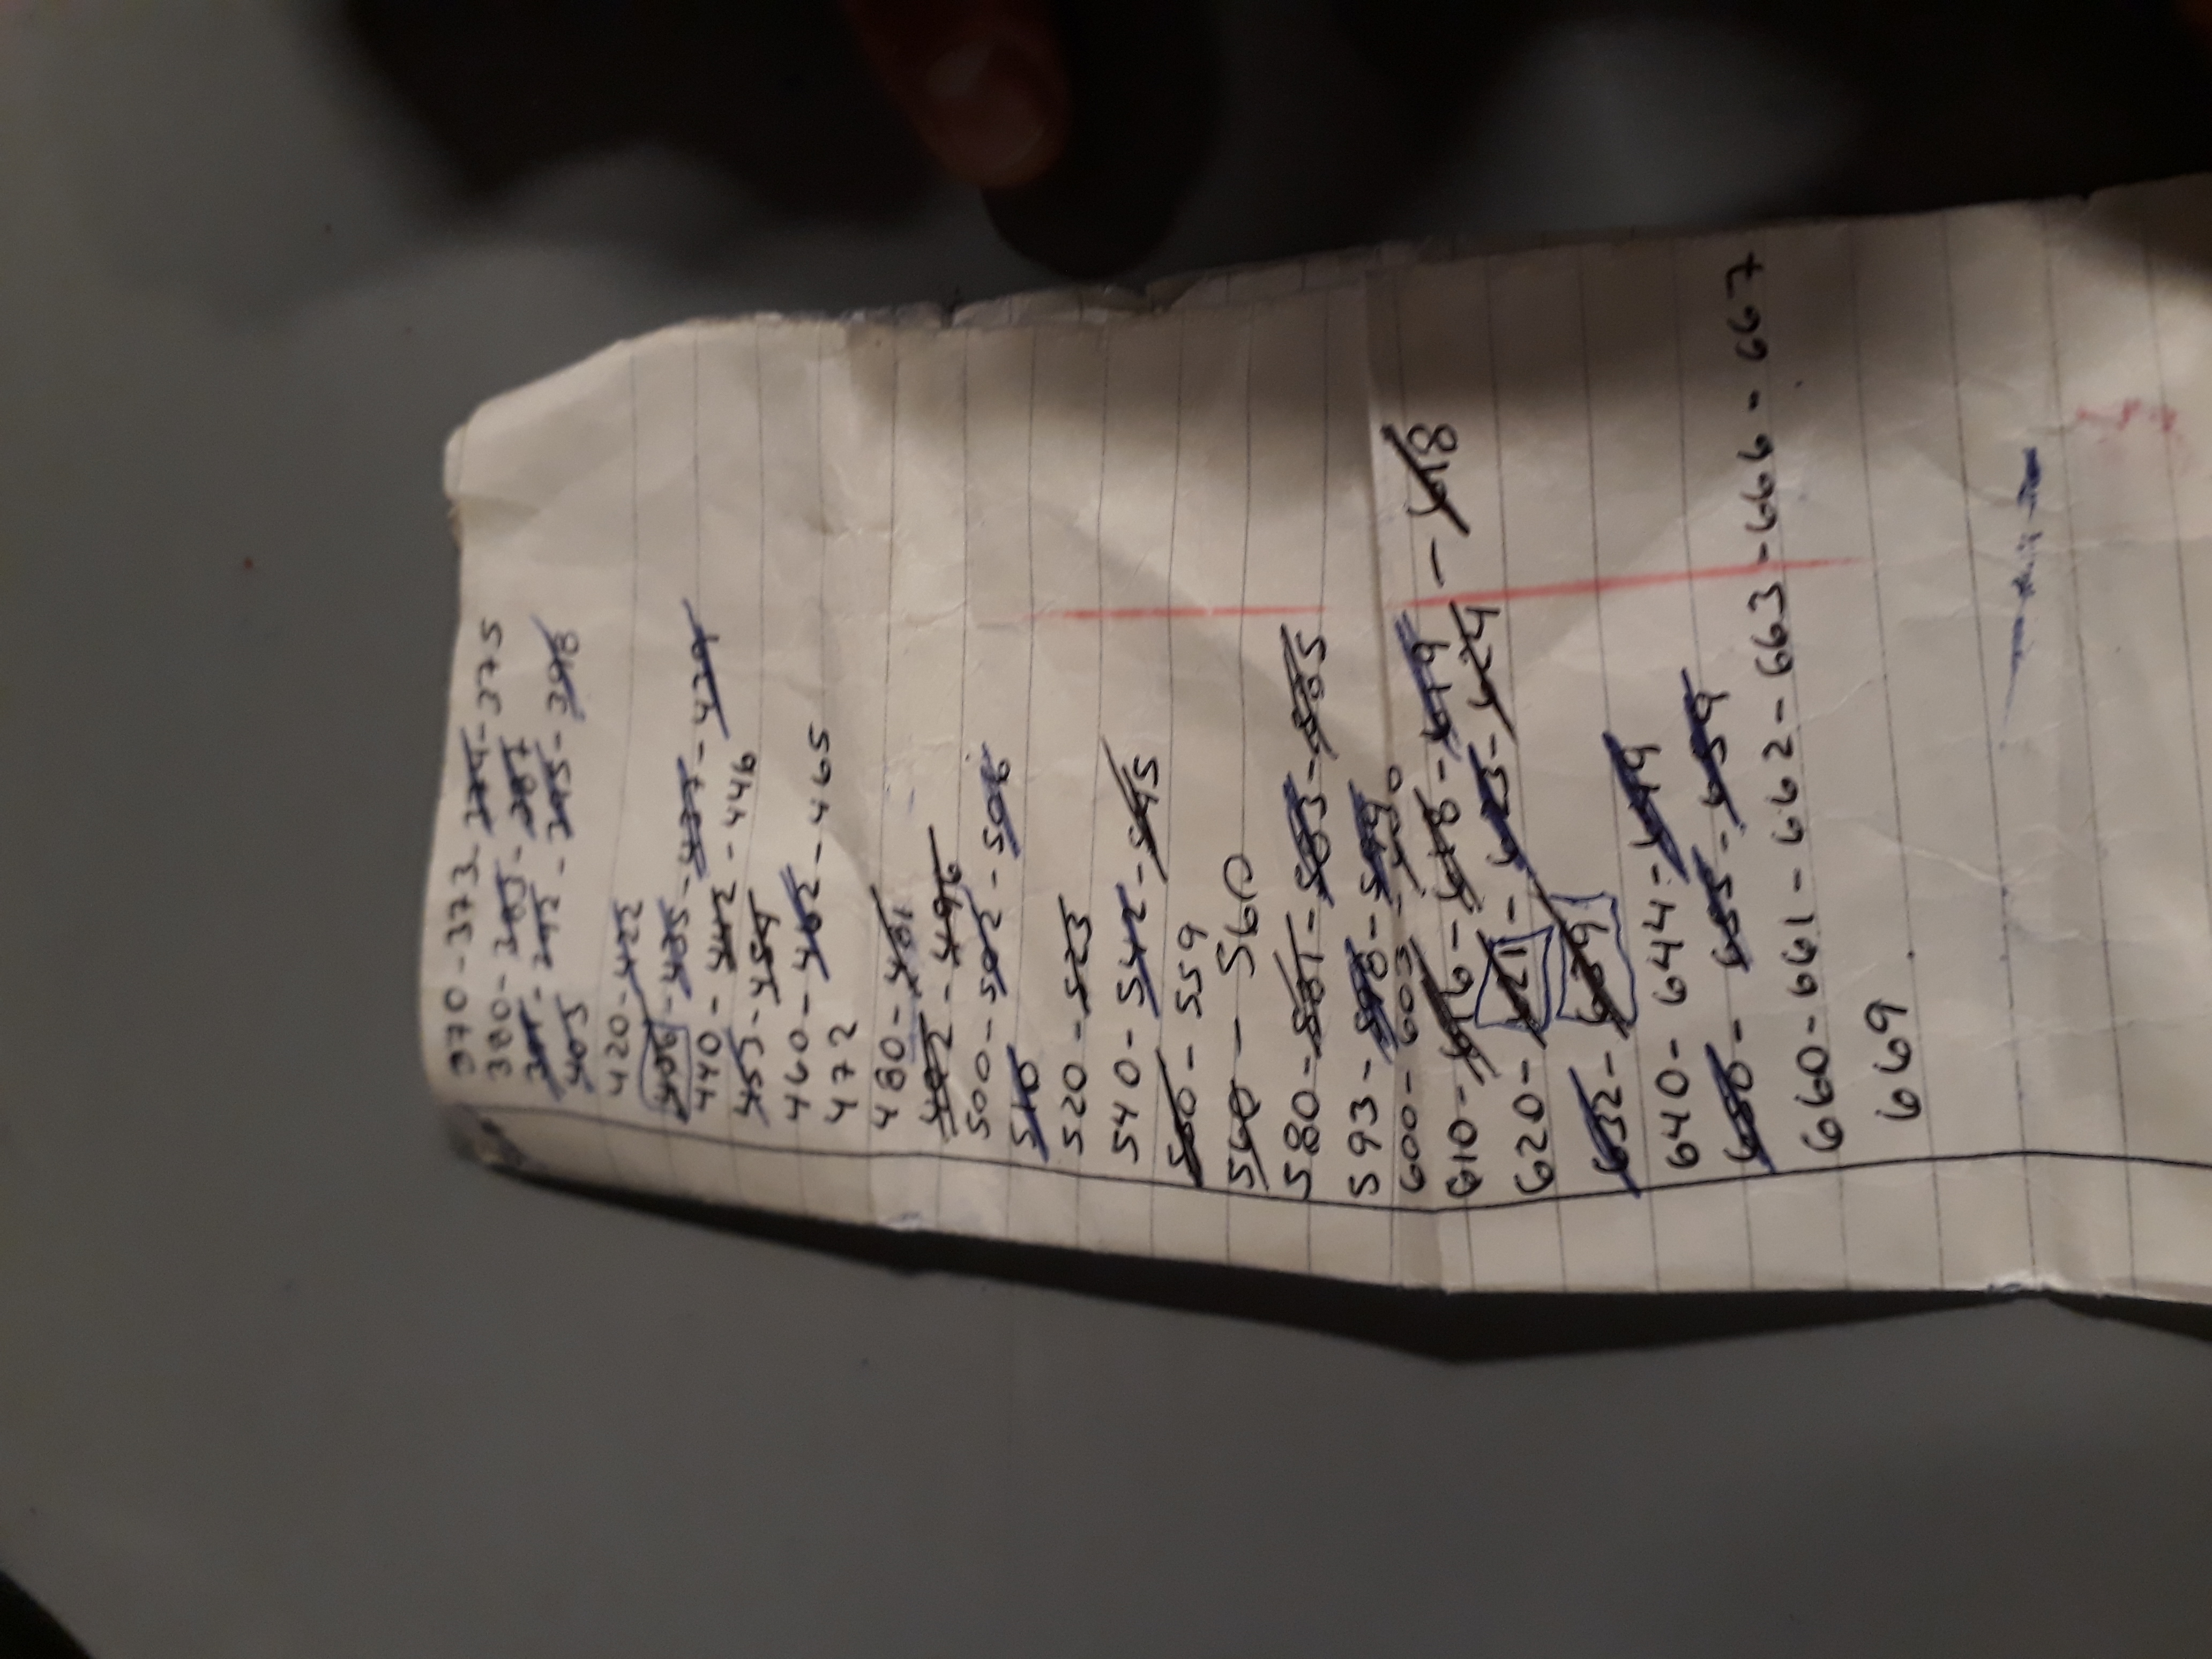 370-373-374-375
380-383-387
391-392-395-398
403
420-422
406-435-437-439
440-442-446
453-454
460-462-465
472
480-481
492-496
500-502-506
510
520-523
540-542-545
550-559
560-560
580-581-583-585
593-598-599
600-603-
610-616-618-619-618
620-621-623-624
632-639
640-644-649
650-655-659
660-661-662-663-666-667
669.